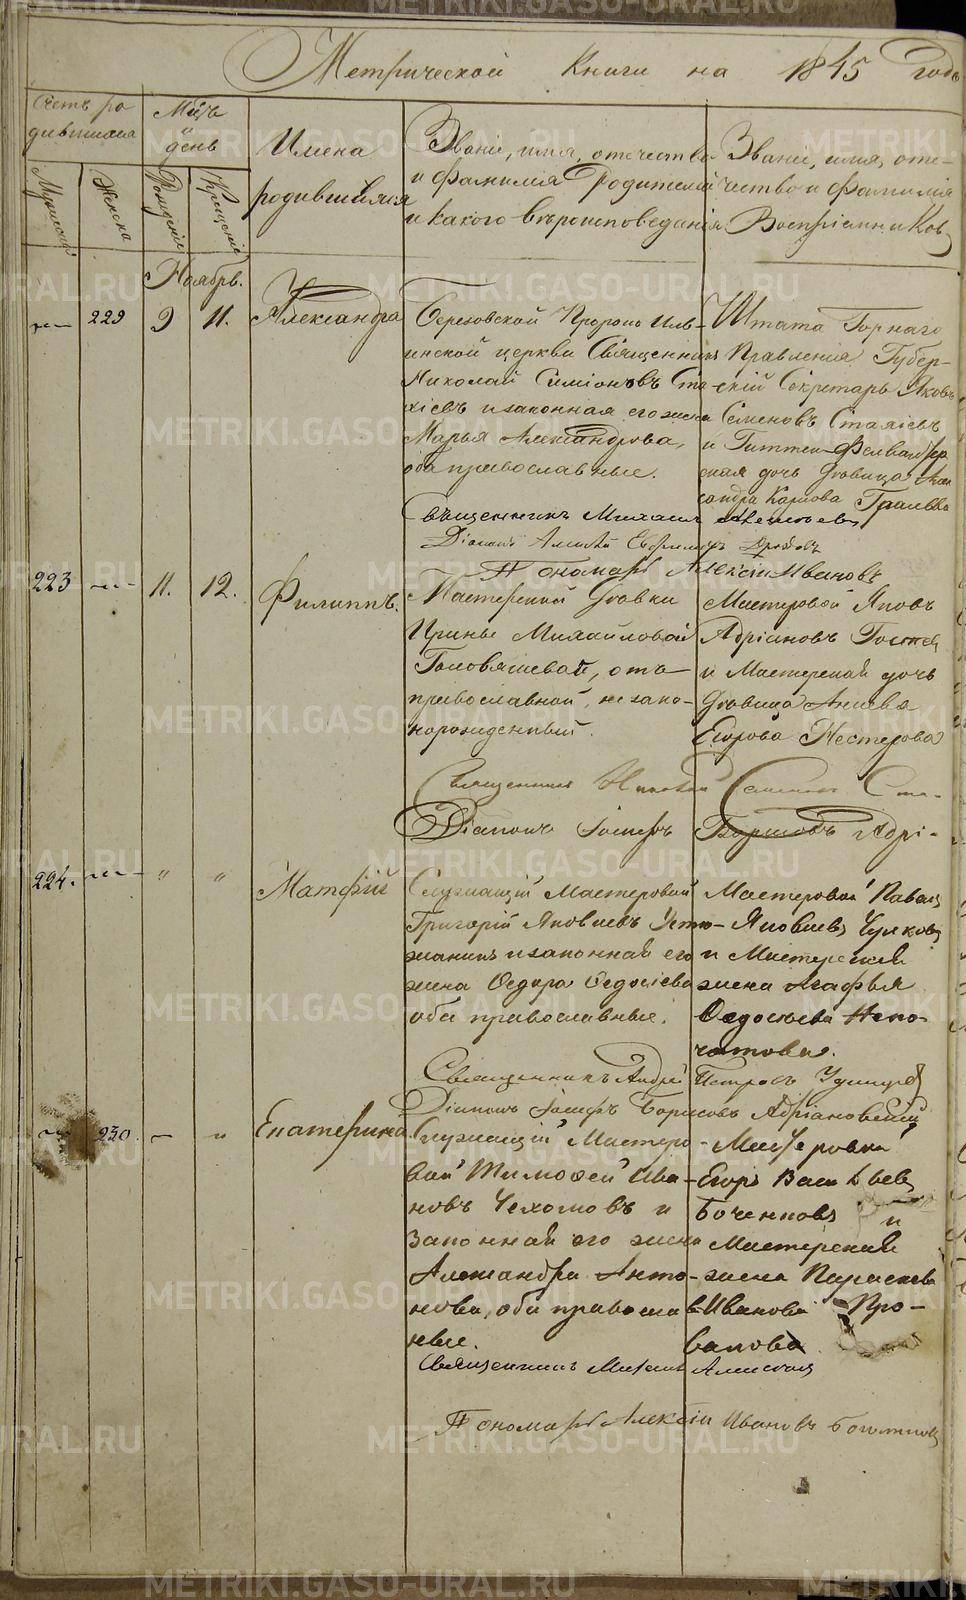 Метрической Книги на 1845 года
Счетъ ро
дившихся
Мѣсяцъ
и
день
Имена
родившихся
Званіе, имя, отечество
и фамилія родителей
и какого вѣроисповеданія
Званіе, имя, оте-
чество и фамилія
Воспріемниковъ
Мужеска
Женска
Рожденіе
Крещеніе
Ноябрь.
229 9 11. Александра
Березовской Пророко Иль-
инской церкви Священникъ
Николай Симіоновъ Ста-
хіевъ и законная его жена
Марья Александрова,
оба православные.
Штата Горнаго
Правленія Губер-
скій Секретарь Яковъ
Семеновъ Стахіевъ
и
дочь Дѣвица
Карлова
Священникъ Михаилъ
Діаконъ
Пономарь Алексій Ивановъ
223 11. 12. Филиппъ.
Мастерской Дѣвки
Ирины Михайловой
Головяшевой, отъ
православной, незако-
норожденный.
Мастеровой Яковъ
Адріановъ
и Мастерская дочь
Дѣвица
Егорова Нестерова
Священникъ Николай Симеоновъ Ста-
Діаконъ Іосифъ Борисовъ Адрі-
224. " " Матфій
Служащій Мастеровой
Григорій Яковлевъ Устю-
жанинъ и законная его
жена Ѳедора Ѳедосіева
оба православные.
Мастеровой Павелъ
Яковлевъ Чулковъ
и Мастерская
жена Агафья
Ѳедосѣева Непо-
чатова.
Священникъ Андрей Петровъ Удинцевъ
Діаконъ Іосифъ Борисовъ Адріановскій
230. " Екатерина
Служащій Мастеро-
вой Тимофей Ива-
новъ Чехомовъ и
Законная его жена
Александра Анто-
нова, оба православ-
ные.
Мастеровой
Егоръ Васильевъ
Боченковъ
и
Мастерская
жена Параскева
Иванова Про-
валова
Священникъ Михаилъ
Пономарь Алексій Ивановъ
METRIKI.GASO-URAL.RU